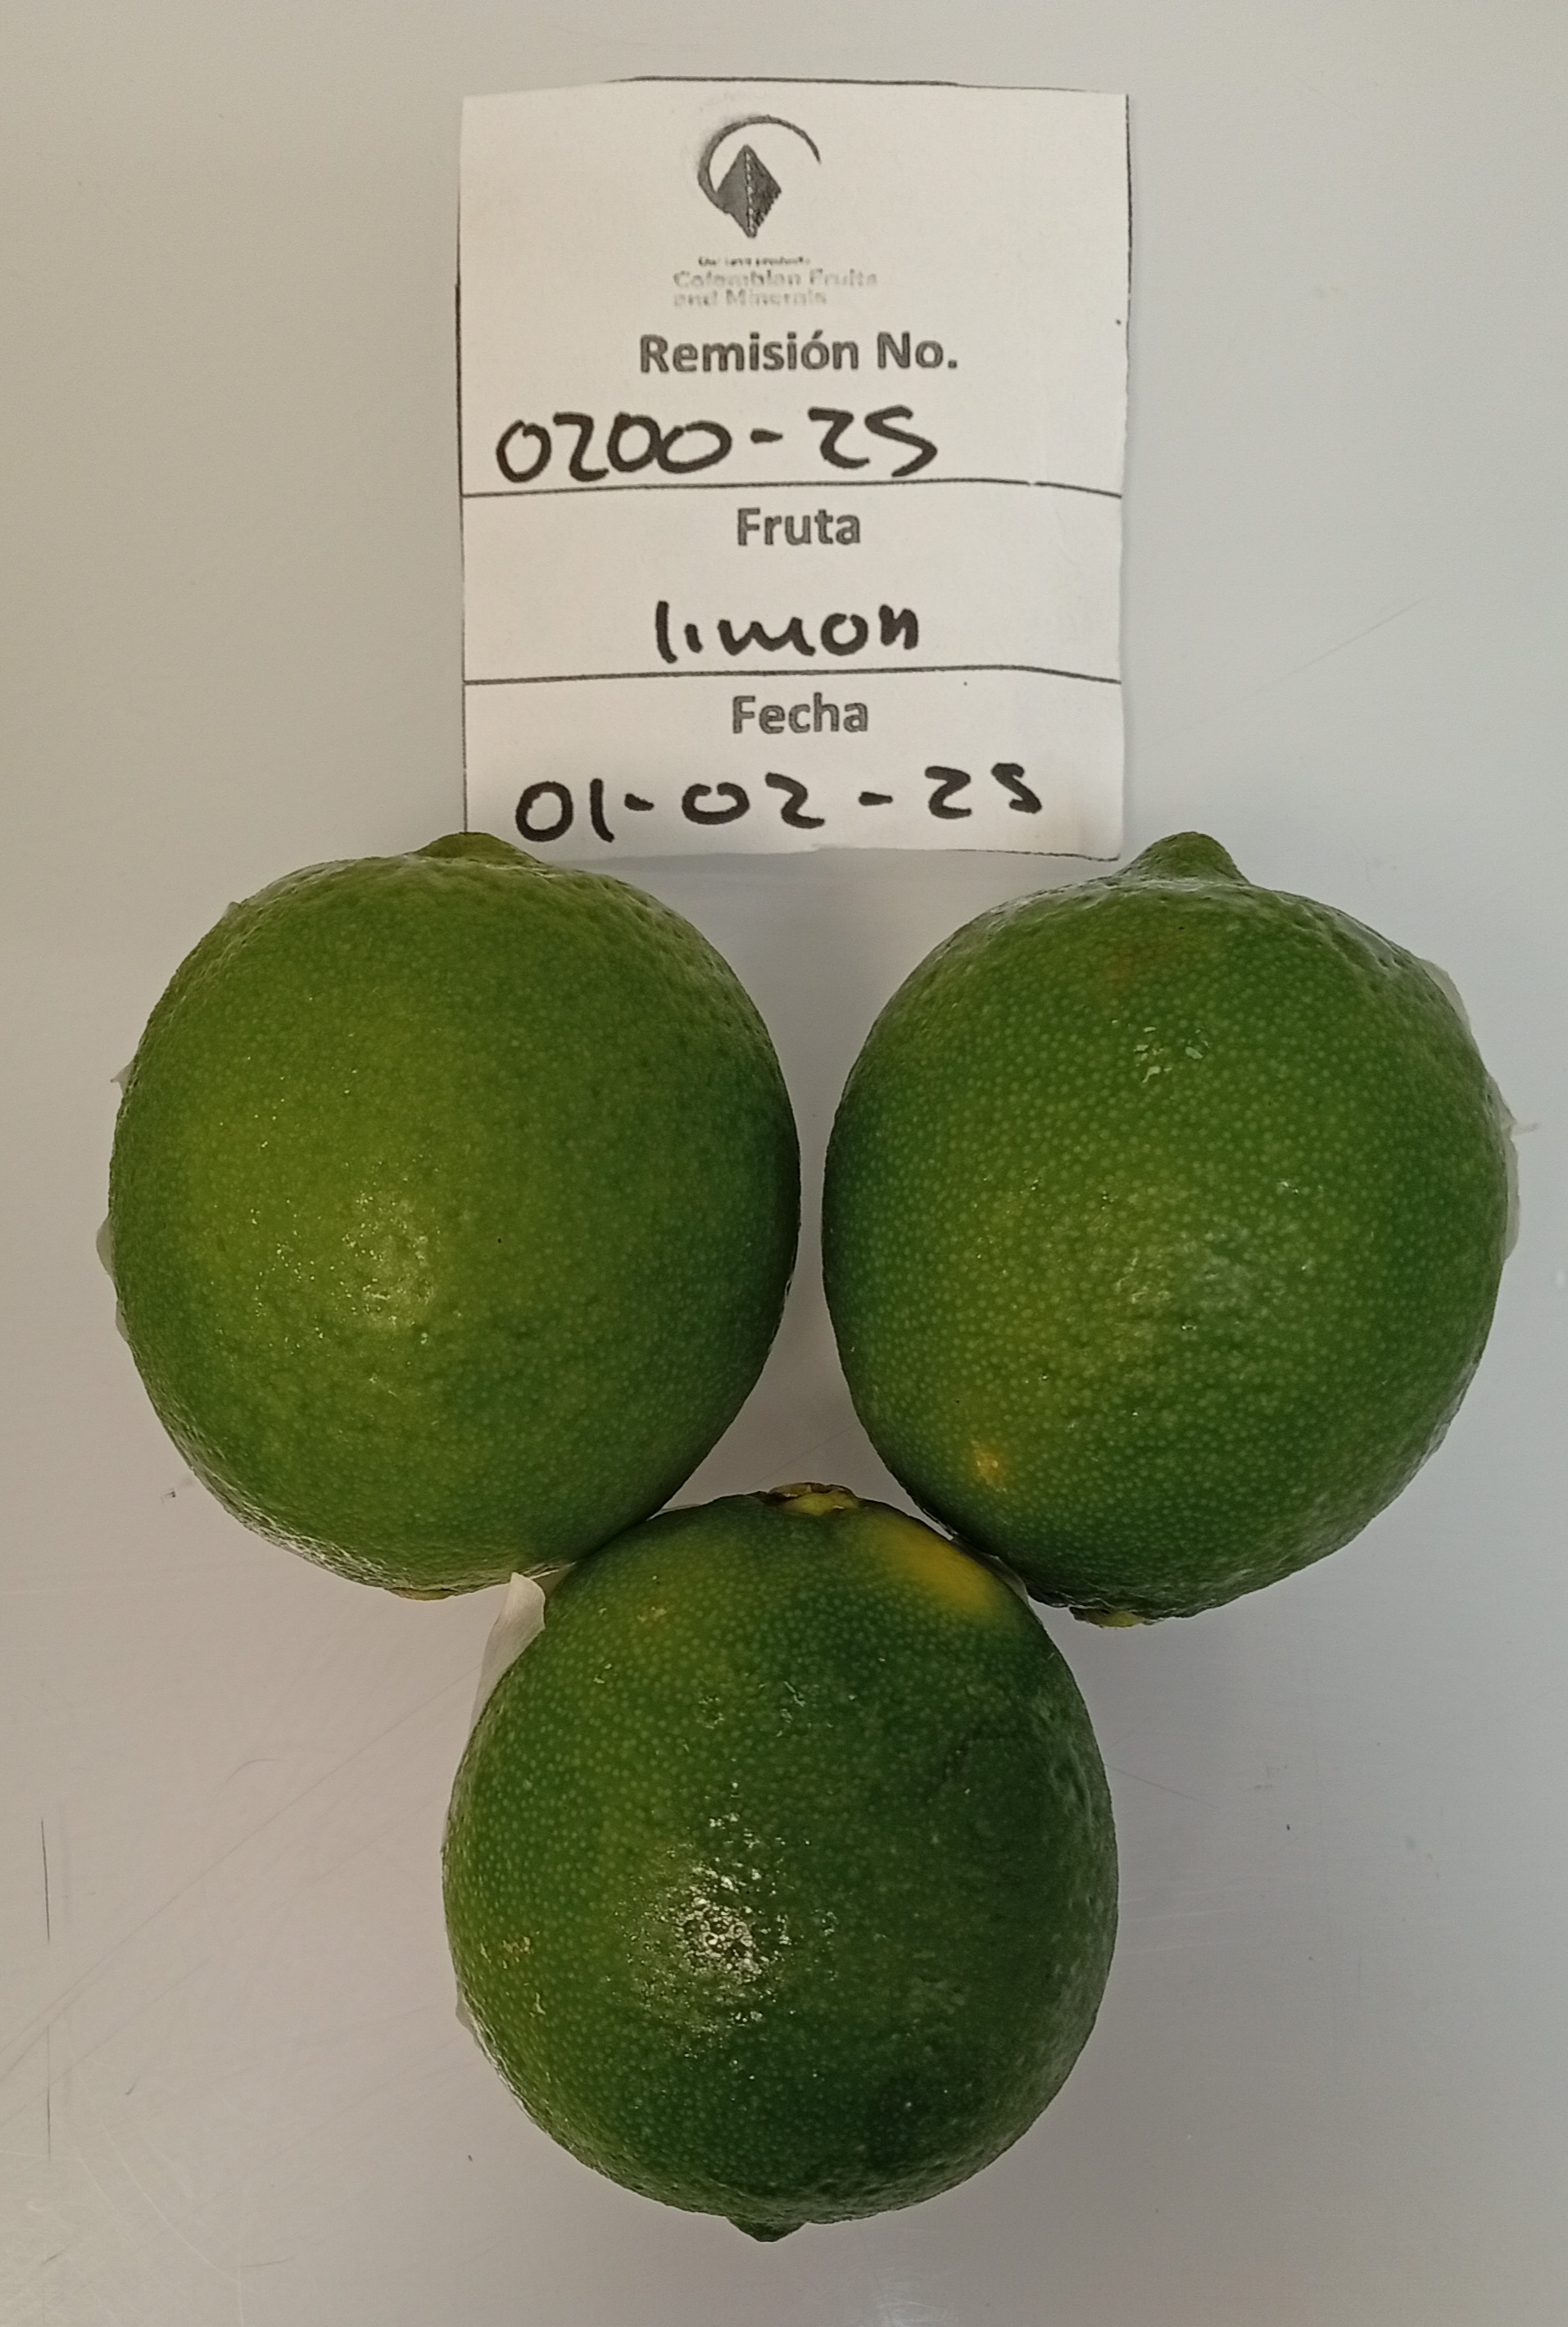 Colombian Fruits
and Minerals
Remisión No.
0200-25
Fruta
limon
Fecha
01-02-25